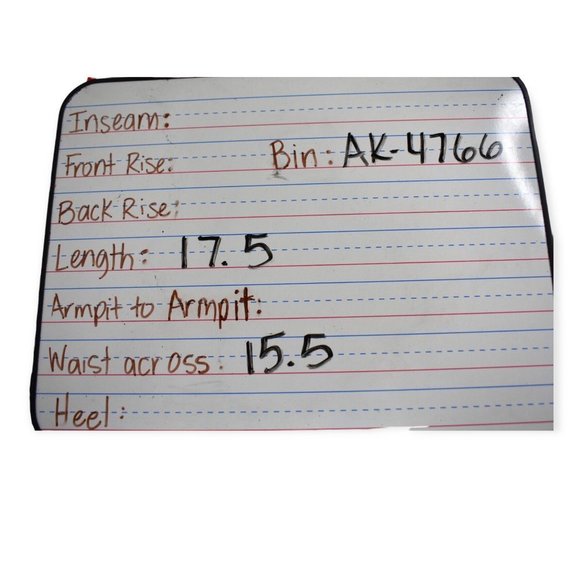 Inseam:
Front Rise:
Bin: AK-4766
Back Rise:
Length: 17.5
Armpit to Armpit:
Waist across: 15.5
Heel: